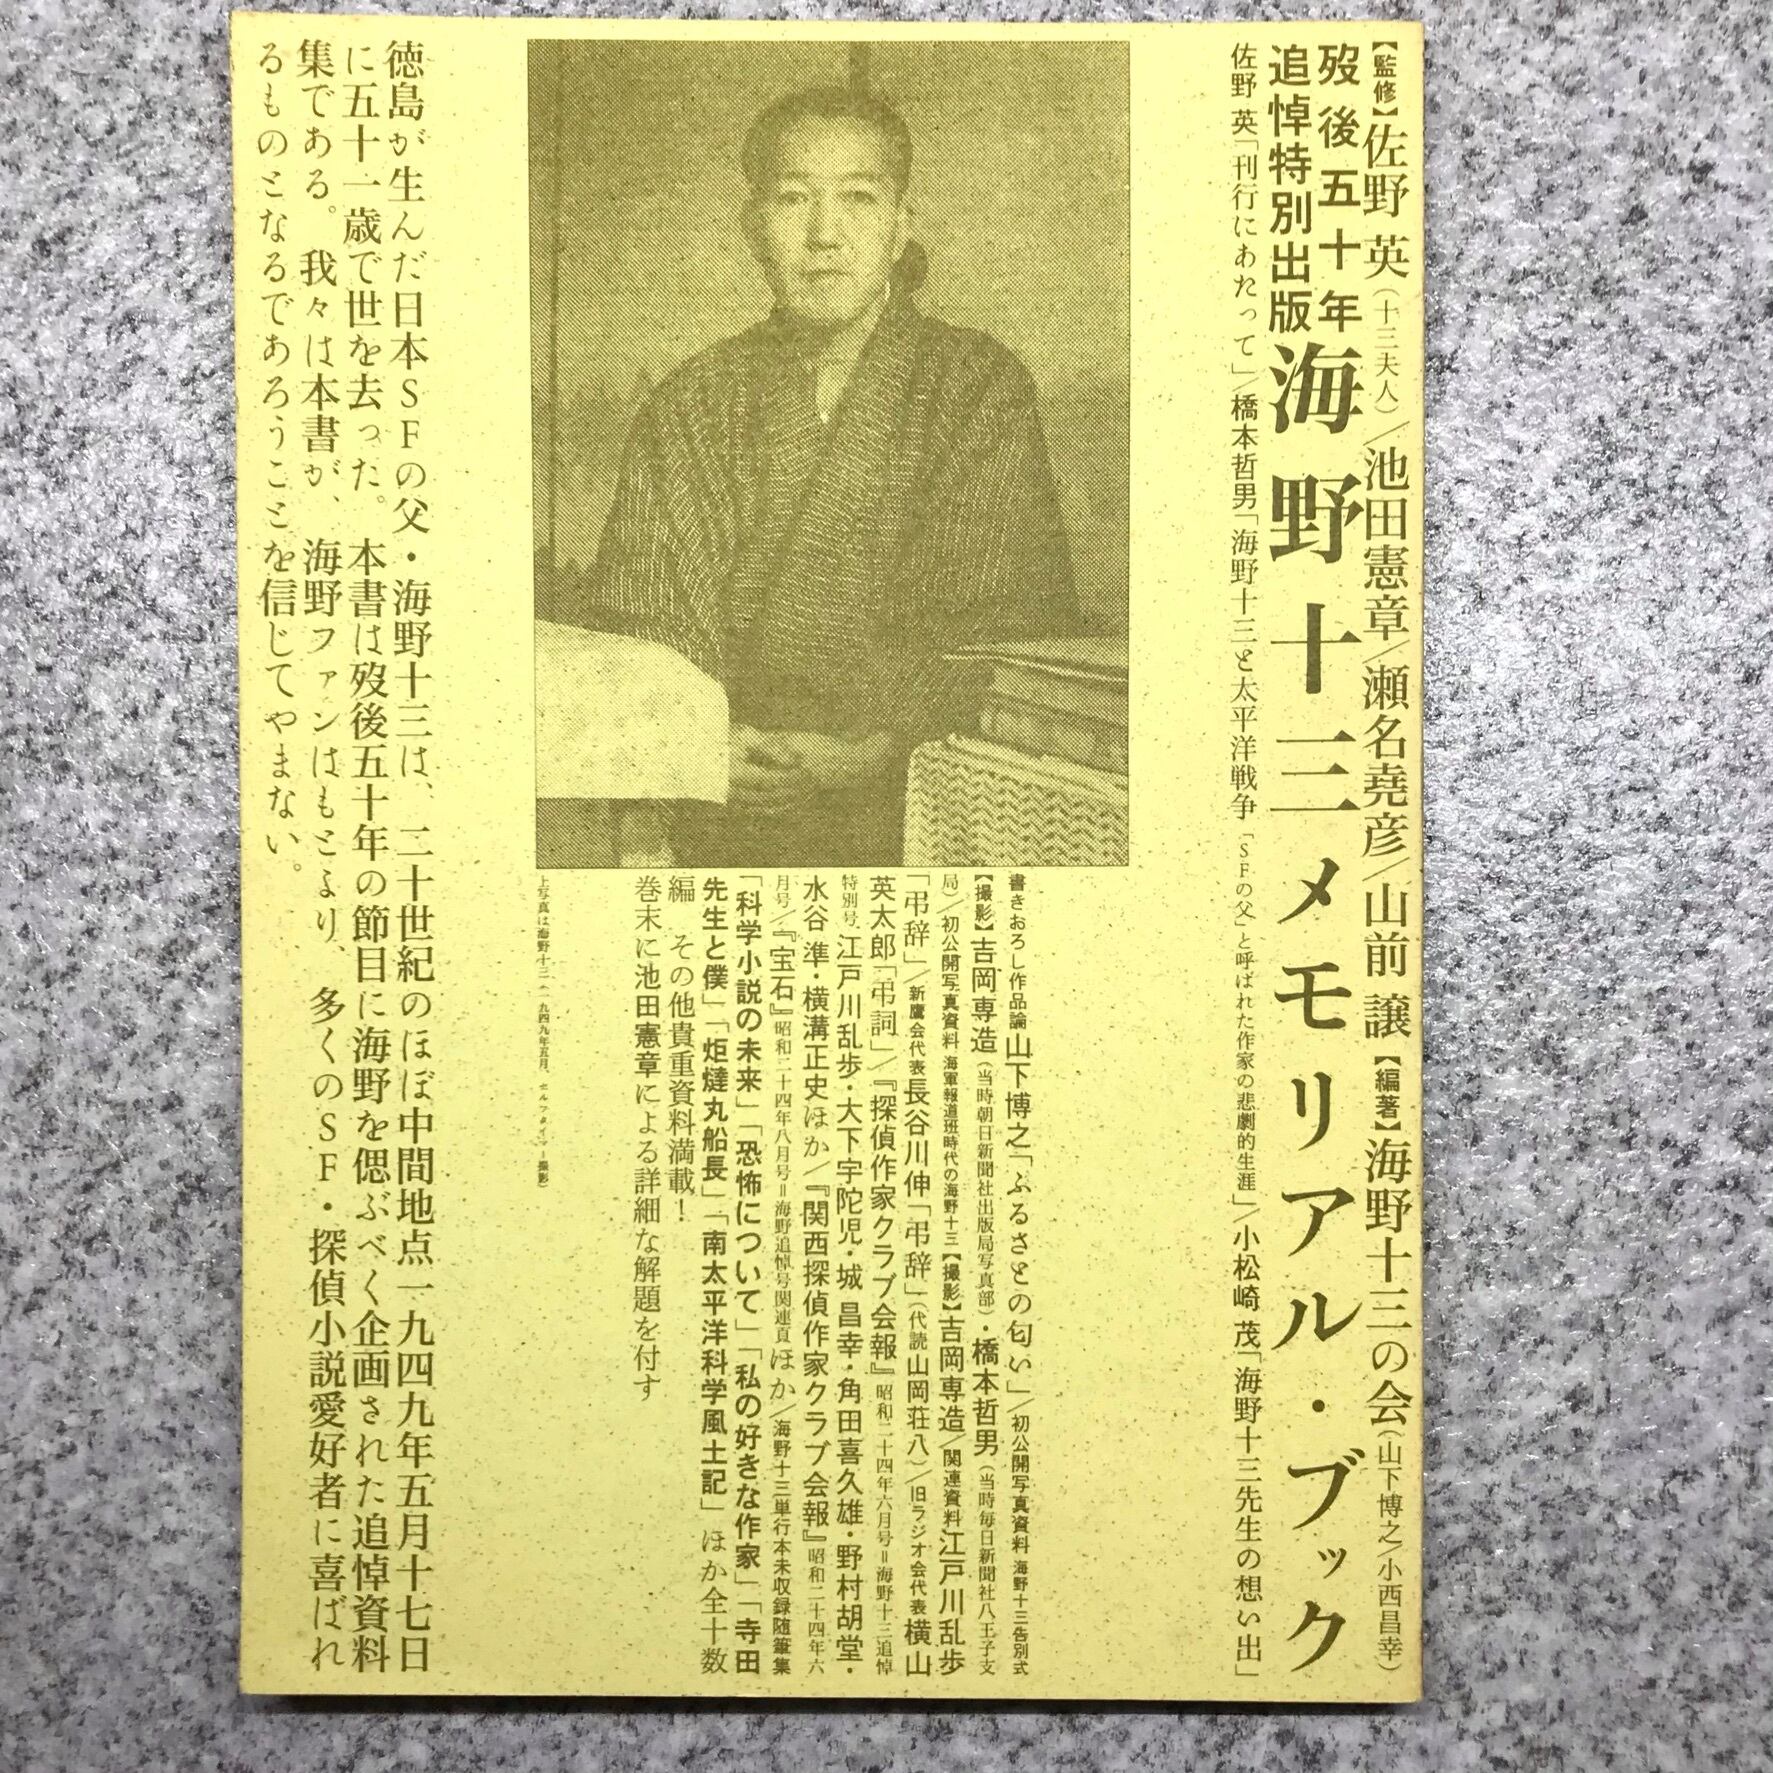 【監修】佐野 英(十三夫人)／池田憲章／瀬名堯彦／山前 譲【編著】海野十三の会(山下博之／小西昌幸)
歿後五十年
追悼特別出版
海野十三メモリアル・ブック
佐野 英「刊行にあたって」／橋本哲男「海野十三と太平洋戦争「SFの父」と呼ばれた作家の悲劇的生涯」／小松崎 茂「海野十三先生の想い出」
書きおろし作品論 山下博之「ふるさとの匂い」／初公開写真資料 海野十三告別式
【撮影】吉岡専造(当時朝日新聞社出版局写真部)・橋本哲男(当時毎日新聞社八王子支
局)／初公開写真資料 海軍報道班時代の海野十三【撮影】吉岡専造／関連資料 江戸川乱歩
「弔辞」／新鷹会代表 長谷川伸「弔辞」(代読 山岡荘八)／旧ラジオ会代表 横山
英太郎「弔詞」／『探偵作家クラブ会報』昭和二十四年六月号＝海野十三追悼
特別号 江戸川乱歩・大下宇陀児・城 昌幸・角田喜久雄・野村胡堂・
水谷 準・横溝正史ほか／『関西探偵作家クラブ会報』昭和二十四年六
月号／『宝石』昭和二十四年八月号＝海野追悼号関連頁 ほか／海野十三単行本未収録随筆集
「科学小説の未来」「恐怖について」「私の好きな作家」「寺田
先生と僕」「炬燵丸船長」「南太平洋科学風土記」ほか全十数
編 その他貴重資料満載！
巻末に池田憲章による詳細な解題を付す
上写真は海野十三(一九四九年五月、セルフタイマー撮影)
徳島が生んだ日本SFの父・海野十三は、二十世紀のほぼ中間地点一九四九年五月十七日
に五十一歳で世を去った。本書は歿後五十年の節目に海野を偲ぶべく企画された追悼資料
集である。我々は本書が、海野ファンはもとより、多くのSF・探偵小説愛好者に喜ばれ
るものとなるであろうことを信じてやまない。